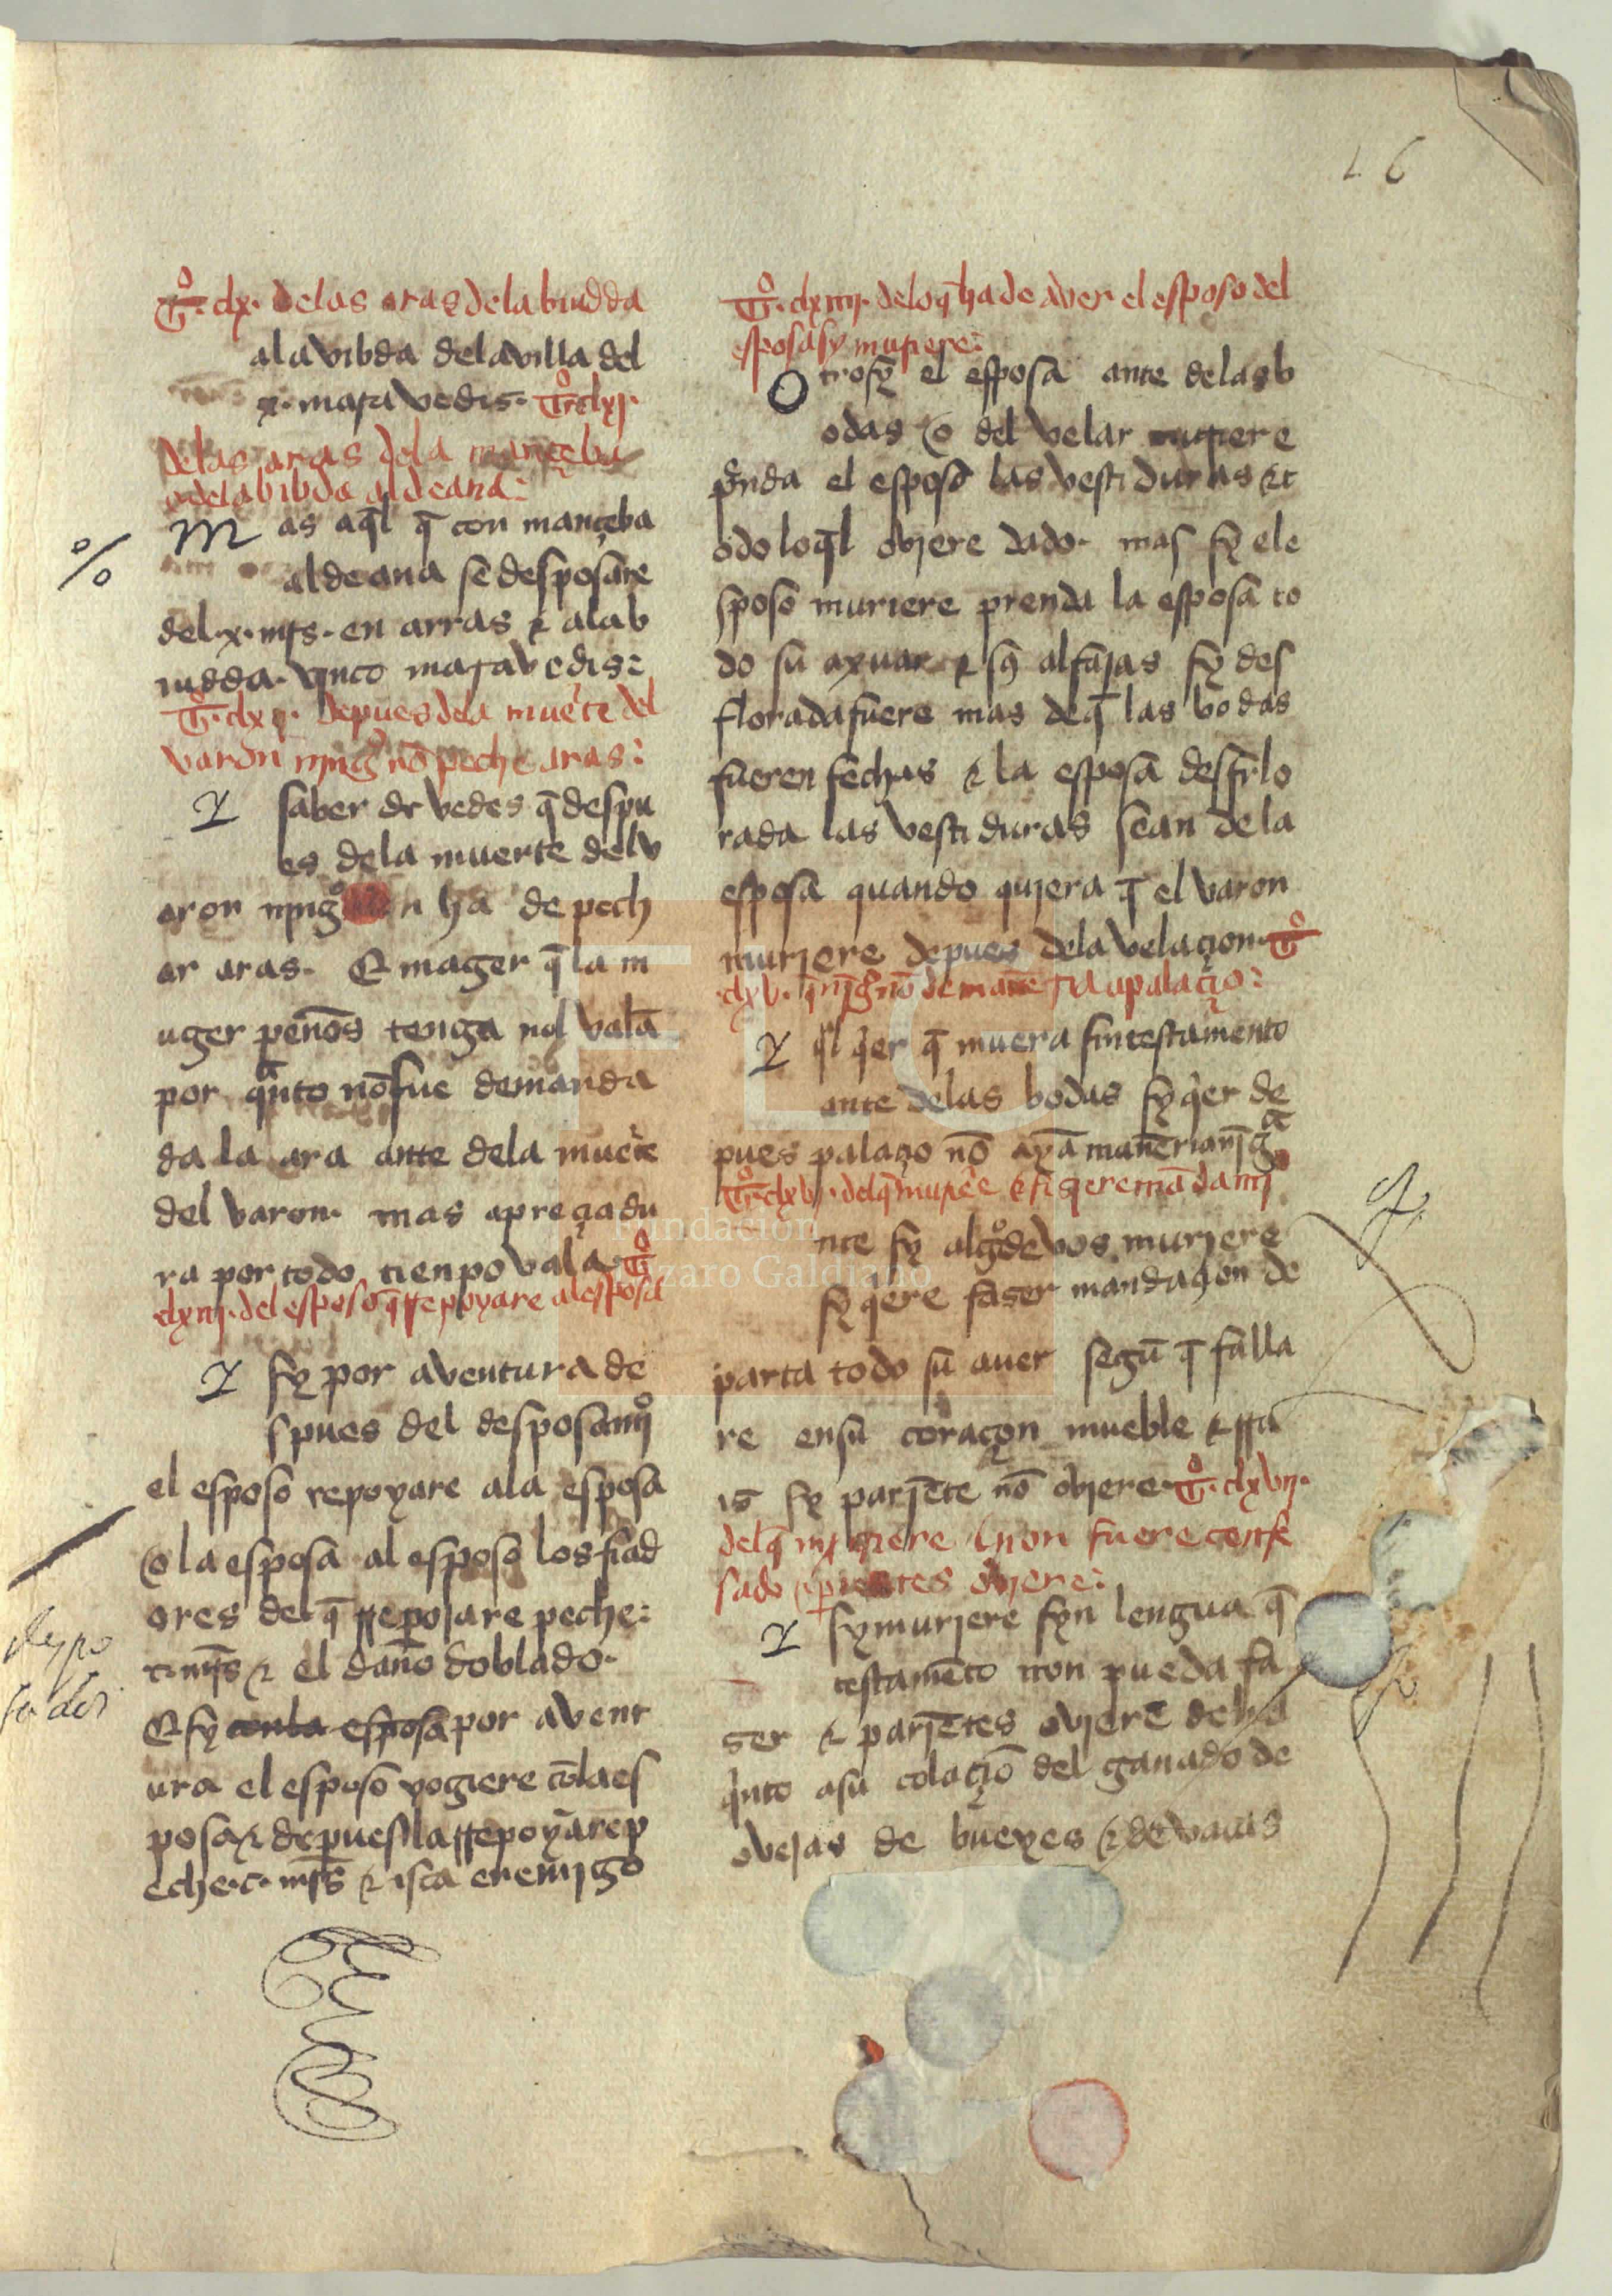 26
Tº. clx. de las aras de la biudda
a la vibda de la villa del
x. maravedis. Tº. clxj.
de las aras de la mançeba
o de la bibda aldeana:
Mas aql̃ q̃ con mançeba
aldeana se desposare
del .x. mrs. en arras ⁊ a la b
iudda. çinco maravedis:
Tº. clxij. depues dela muer̃te del
varon ningº nõ peche aras:
Y saber devedes q̃ despu
es de la muerte del v
aron ningº non ha de pech
ar aras. E mager q̃ la m
uger peños tenga nol vala
por qªnto nõ fue demanda
da la ara ante dela muer̃te
del varon. mas apreçiadu
ra por todo tienpo vala Tº
clxiij. del esposo q̃ rrepoyare al esposa
Y sy por aventura de
spues del desposamjº
el esposo repoyare ala esposa
o la esposa al esposo los fiad
ores del q̃ rrepojare peche:
c. mrs ⁊ el daño doblado.
E sy con la esposa por avent
ura el esposo yogiere cõ la es
posa ⁊ depues la rrepoyare p
eche .c. mrs ⁊ isca enemigo
Tº. clxiiij. delo q̃ ha de aver el esposo del
esposa sy muriere:
Otrosy el esposa ante delas b
odas o del velar muriere
prenda el esposo las vestiduras ⁊ t
odo lo q̃l oviere dado. mas sy el e
sposo muriere prenda la esposa to
do su axuar ⁊ sus alfajas sy des
florada fuere mas de q̃ las bodas
fueren fechas ⁊ la esposa desflo
rada las vestiduras sean de la
esposa quando quiera q̃ el varon
muriere depues dela velaçion. Tº
clxv. q̃ ningº nõ de mañeria a palaçio:
Y ql̃ q̃er q̃ muera sin testamento
ante delas bodas sy q̃er de
pues palaçio nõ aya mañeria nj̃gª
Tº. clxvj. del q̃ muriere ⁊ si q̃ere mãda mj
nte sy algº de vos muriere
sy q̃ere faser mandaçion de
parta todo su aver segũ q̃ falla
re en su coraçon mueble ⁊ rra
is sy pariẽte nõ oviere. Tº. clxvij.
del q̃ muriere ⁊ non fuere confe
sado ⁊ parientes oviere:
Y sy muriere syn lengua q̃
testamẽto non pueda fa
ser ⁊ pariẽtes ovierẽ den el
qinto a su colaçiõ del ganado de
ovejas de bueyes ⁊ de vacas